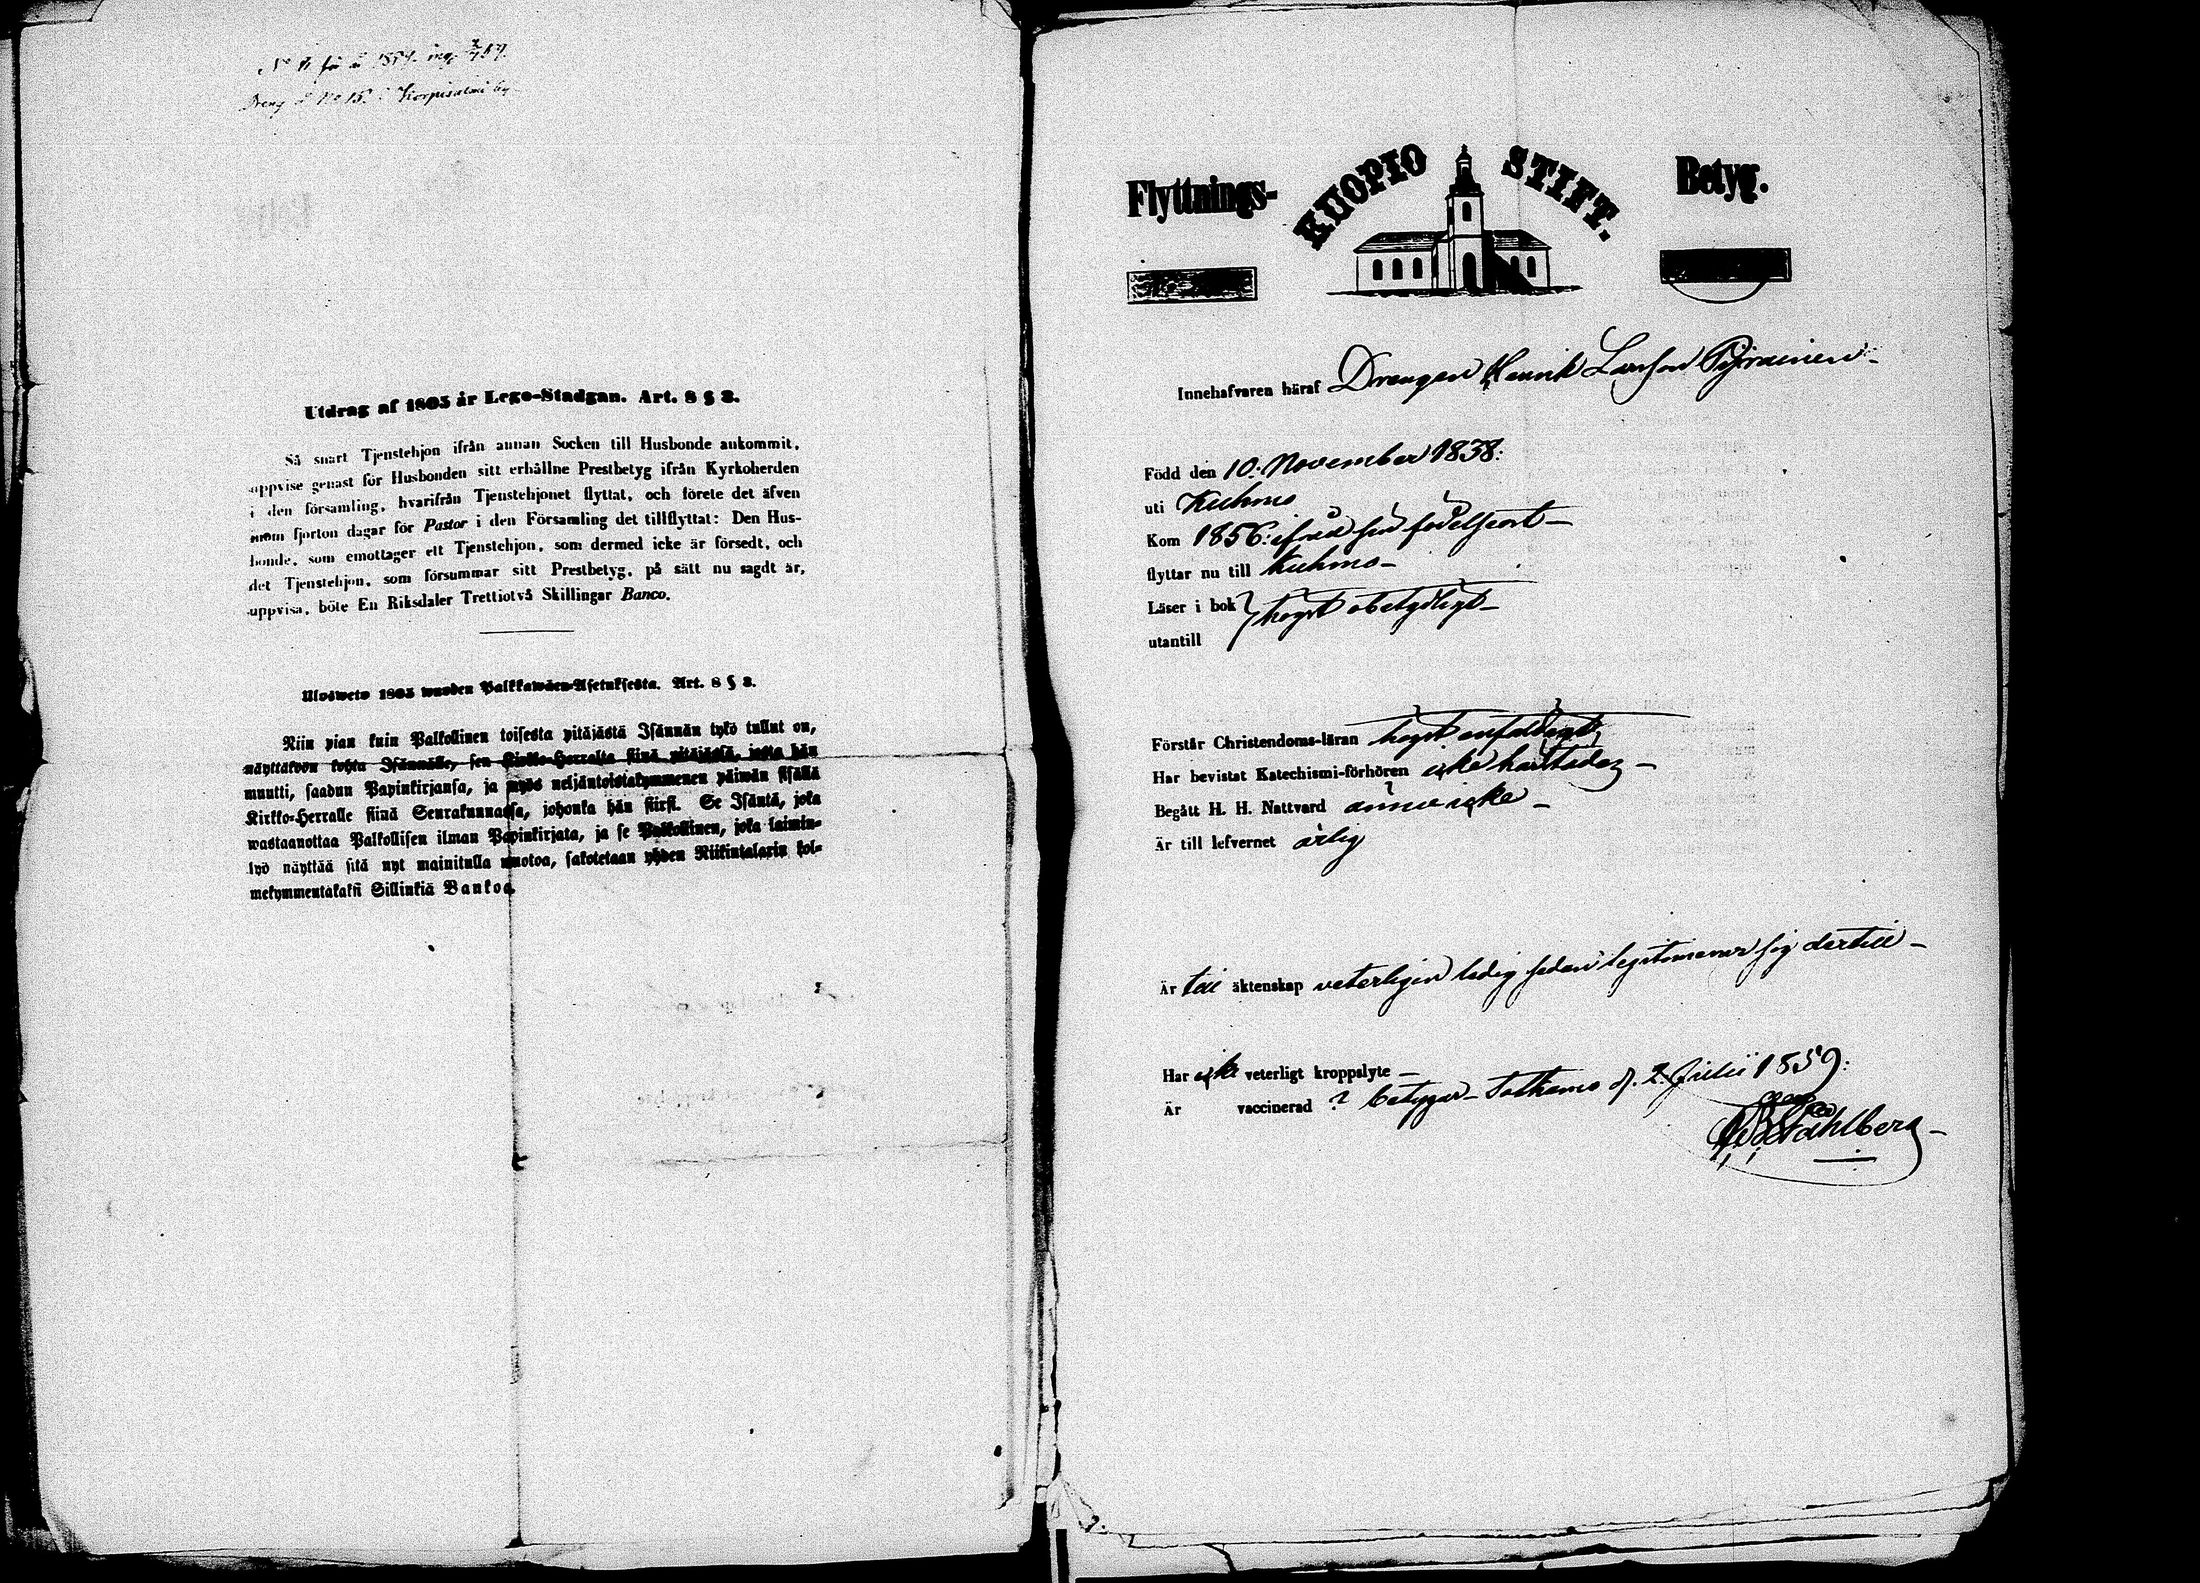 No 11 för år 1859. ing.
Dreng å No 15. i Korpisalmi by
Utdrag af 1805 år Lego-Stadgan. Art. 8 § 3.
Så snart Tjenstehjon ifrån annan Socken till Husbonde ankommit,
uppvise genast för Husbonden sitt erhållne Prestbetyg ifrån Kyrkoherden
i den församling, hvarifrån Tjenstehjonet flyttat, och förete det äfven
inom fjorton dagar för Pastor i den Församling det tillflyttat: Den Hus-
bonde, som emottager ett Tjenstehjon, som dermed icke är försedt, och
det Tjenstehjon, som försummar sitt Prestbetyg, på sätt nu sagdt är,
uppvisa, böte En Riksdaler Trettiotvå Skillingar Banco.
Ulosweto 1805 wuoden Palkkawäen-Asetuksesta. Art. 8 § 3.
Niin pian kuin Palkollinen toisesta pitäjästä Isännän tykö tullut on,
näyttäköön kohta Isännälle, sen Kirkko-Herralta siinä pitäjässä, josta hän
muutti, saadun Papinkirjansa, ja myös neljäntoistakymmenen päiwän sisällä
Kirkko-Herralle siinä Seurakunnassa, johonka hän siirsi. Se Isäntä, joka
wastaanottaa Palkollisen ilman Papinkirjata, ja se Palkollinen, joka laimin-
lyö näyttää sitä nyt mainitulla muotoa, sakotetaan yhden Riikintalarin kol-
mekymmentäkaksi Sillinkiä Bankoa.
Flyttnings- KUOPIO STIFT. Betyg.
Innehafvaren häraf Drengen Henrik Larsson Pyrainen
Född den 10: November 1838:
uti Kuhmo
Kom 1856: ifrån sin födelseort
flyttar nu till Kuhmo
Läser i bok högst obetydligt
utantill
Förstår Christendoms-läran högst enfaldigt
Har bevistat Katechismi-förhören icke härstädes
Begått H. H. Nattvard ännu icke
Är till lefvernet ärlig
Är till äktenskap veterligen ledig sedan legitimerar sig dertill
Har icke veterligt kroppslyte
Är vaccinerad ? betygar Sotkamo d. 2. Julii 1859:
Ståhlberg